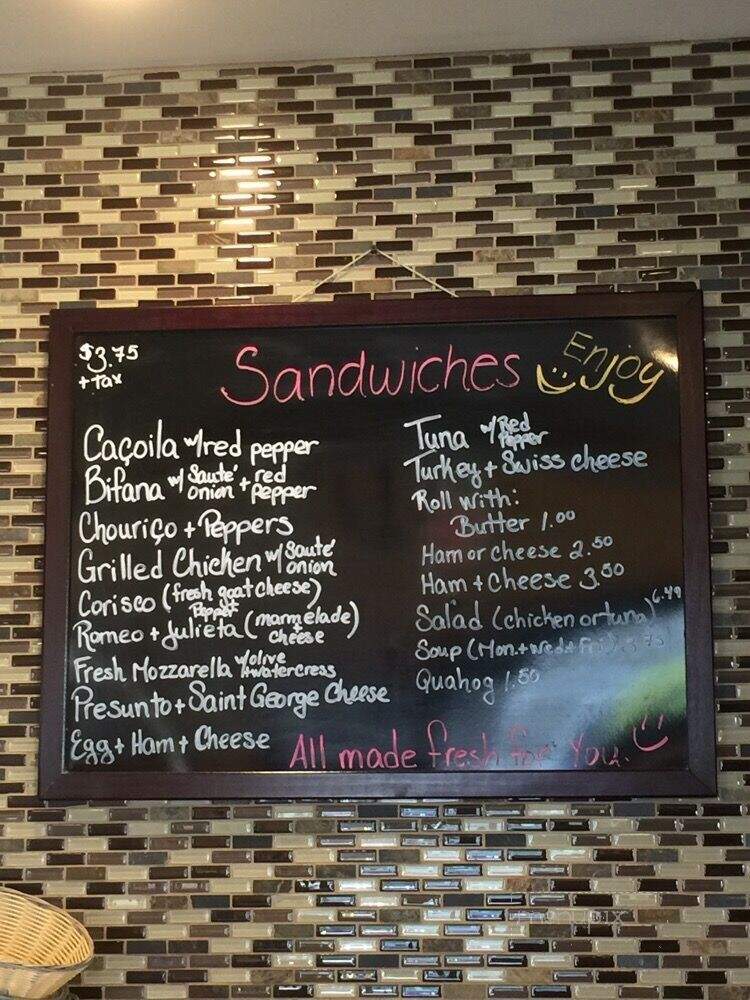 $3.75
+ tax
Sandwiches
Enjoy
Caçoila w/ red pepper
Bifana w/ Sauté onion + red pepper
Chouriço + Peppers
Grilled Chicken w/ Sauté onion
Corisco (fresh goat cheese)
Pepper
Romeo + Julieta (marmelade)
cheese
Fresh Mozzarella w/ olive + watercress
Presunto + Saint George Cheese
Egg + Ham + Cheese
Tuna w/ Red Pepper
Turkey + Swiss cheese
Roll with:
Butter 1.00
Ham or cheese 2.50
Ham + Cheese 3.50
Salad (chicken or tuna) 6.49
Soup (Mon. + Wed + Fri) 3.75
Quahog 1.50
All made fresh for You.